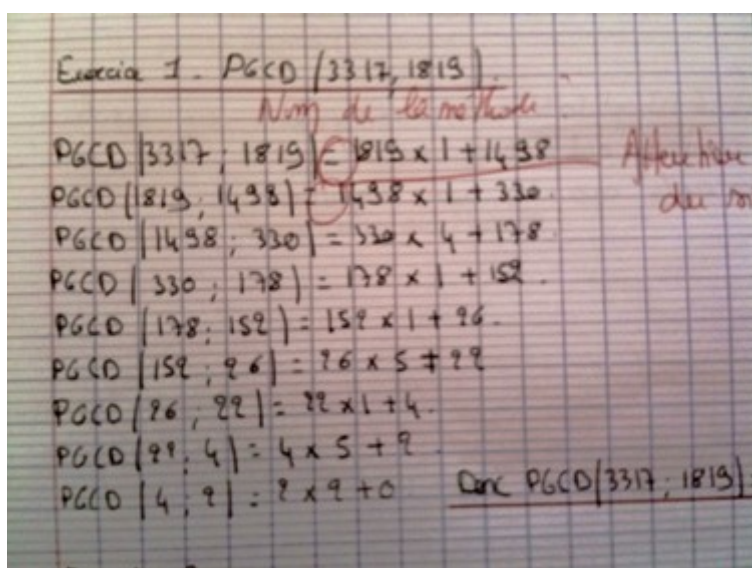 Exercice 1. PGCD (3317, 1819).
Nom de la méthode.
PGCD (3317 ; 1819) = 1819 x 1 + 1498
Attention
PGCD (1819 ; 1498) = 1498 x 1 + 330.
du
PGCD (1498 ; 330) = 330 x 4 + 178
PGCD ( 330 ; 178) = 178 x 1 + 152.
PGCD (178 ; 152) = 152 x 1 + 26.
PGCD (152 ; 26) = 26 x 5 + 22
PGCD (26 ; 22) = 22 x 1 + 4.
PGCD (22 ; 4) = 4 x 5 + 2
PGCD (4 ; 2) = 2 x 2 + 0 Donc PGCD(3317 ; 1819)